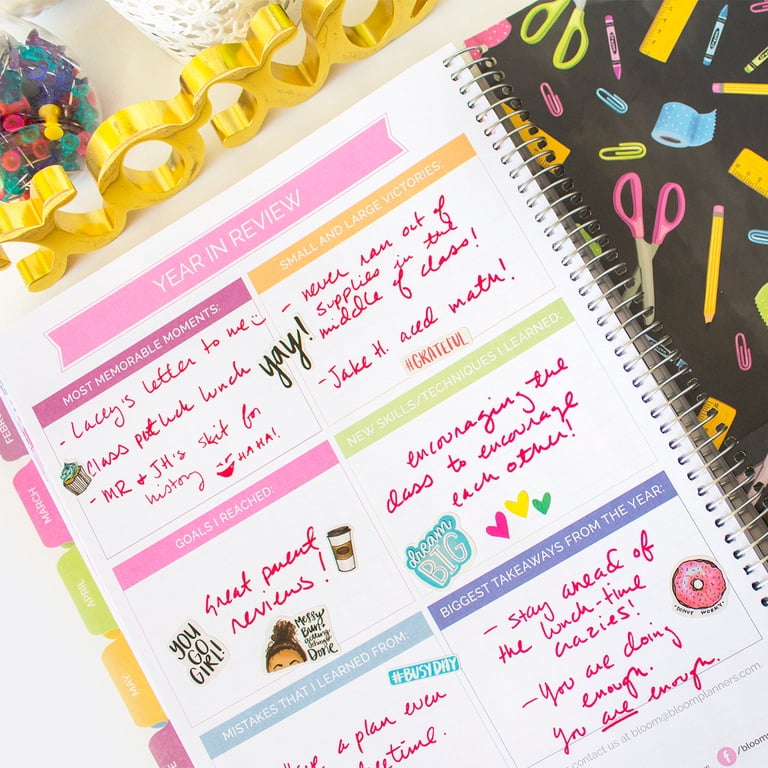 YEAR IN REVIEW
MOST MEMORABLE MOMENTS:
- Lacey's letter to me
Class potluck lunch
- MR & JH's skit for
history HAHA!
yay!
SMALL AND LARGE VICTORIES:
- never ran out of
supplies in the
middle of class!
- Jake H. aced math!
#GRATEFUL
GOALS I REACHED:
great parent
reviews!
YOU
GO
GIRL!
MESSY
BUN &
getting
STUFF
Done
NEW SKILLS/TECHNIQUES I LEARNED:
encouraging the
class to encourage
each other!
dream
BIG
MISTAKES THAT I LEARNED FROM:
#BUSYDAY
a plan even
BIGGEST TAKEAWAYS FROM THE YEAR:
- Stay ahead of
the lunch-time
crazies!
- You are doing
enough.
You are enough.
DONUT WORRY
contact us at bloom@bloomplanners.com.
/bloom
MARCH
APRIL
MAY